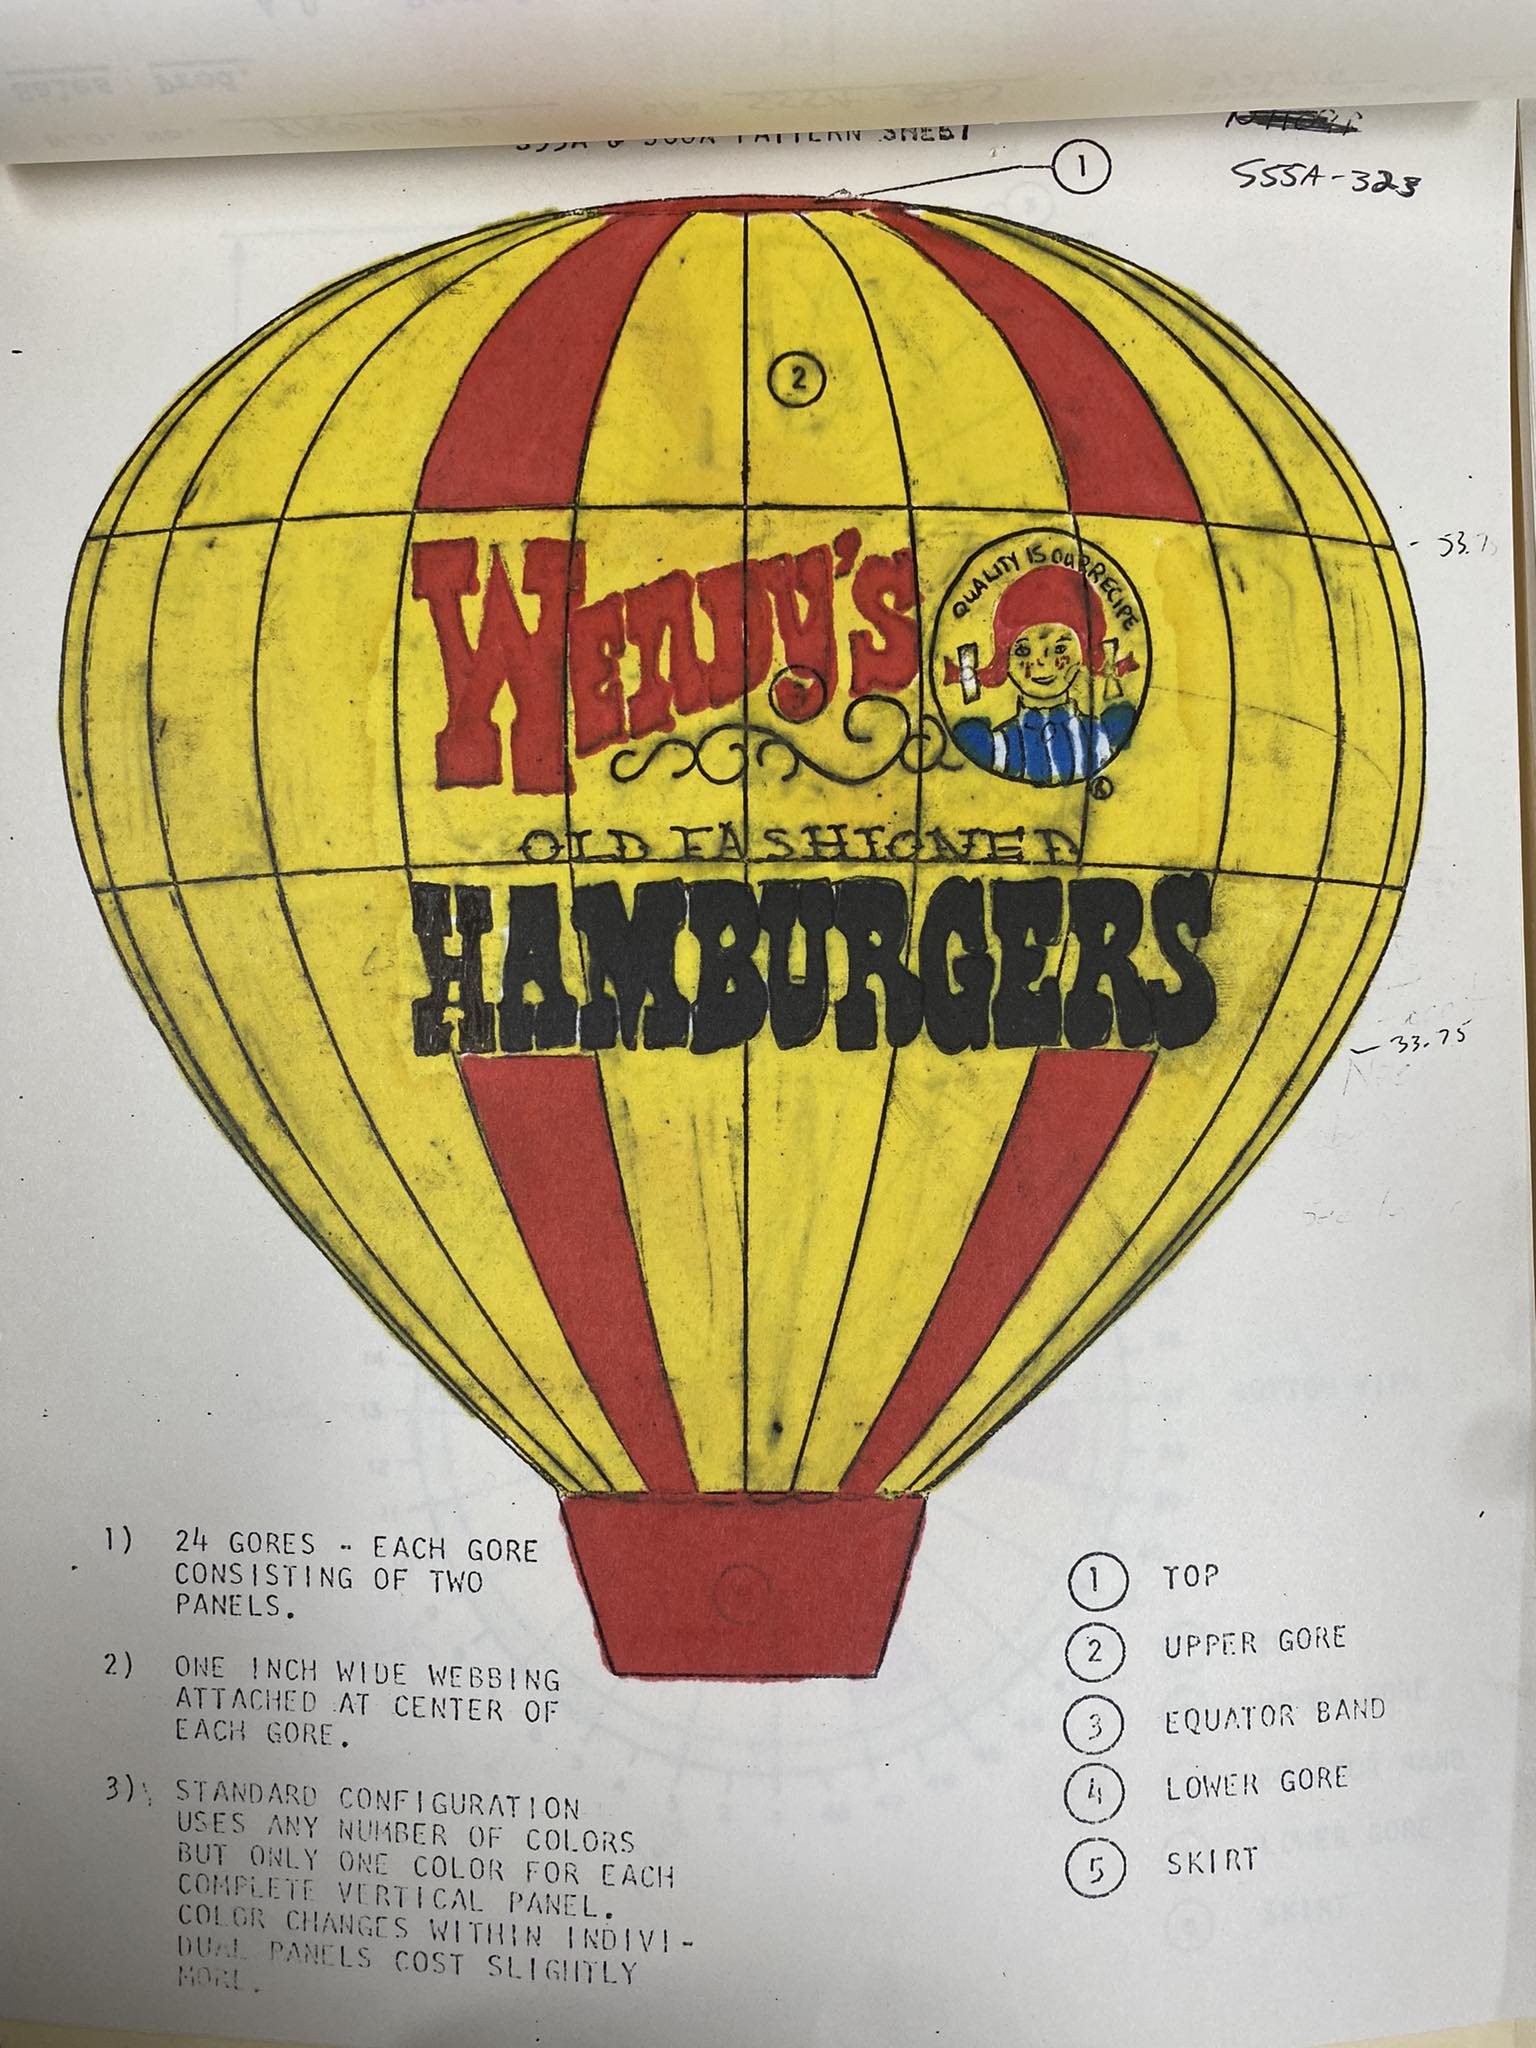 PATTERN SHEET
1
S55A-323
2
53.7
WENDY'S
QUALITY IS OUR RECIPE
3
®
OLD FASHIONED
HAMBURGERS
33.75
1) 24 GORES - EACH GORE
CONSISTING OF TWO
PANELS.
2) ONE INCH WIDE WEBBING
ATTACHED AT CENTER OF
EACH GORE.
3) STANDARD CONFIGURATION
USES ANY NUMBER OF COLORS
BUT ONLY ONE COLOR FOR EACH
COMPLETE VERTICAL PANEL.
COLOR CHANGES WITHIN INDIVI-
DUAL PANELS COST SLIGHTLY
MORE.
1 TOP
2 UPPER GORE
3 EQUATOR BAND
4 LOWER GORE
5 SKIRT